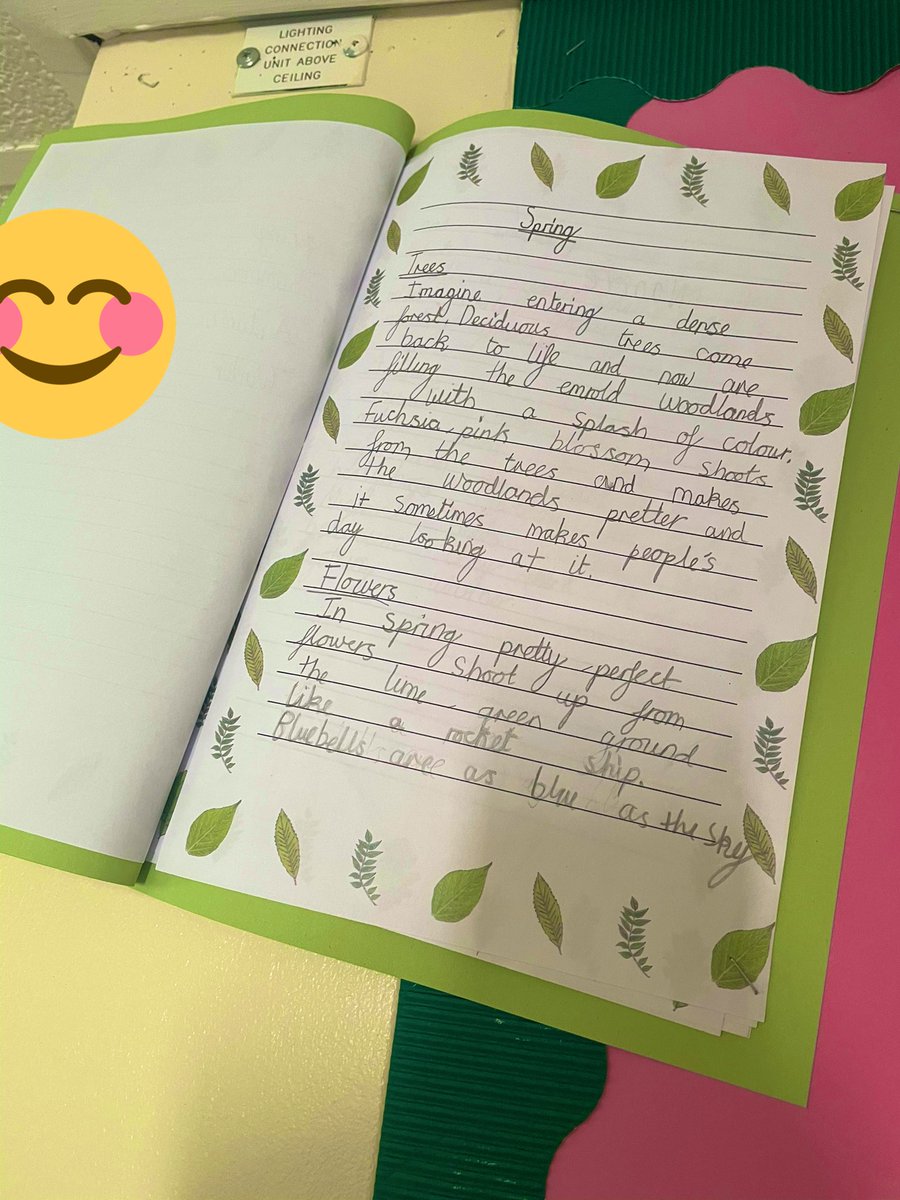 LIGHTING
CONNECTION
UNIT ABOVE
CEILING
Spring
Trees
Imagine entering a dense
forest. Deciduous trees come
back to life and now are
filling the emrold woodlands
with a splash of colour.
Fuchsia pink blossom shoots
from the trees and makes
the woodlands pretter and
it sometimes makes people's
day looking at it.
Flowers
In Spring pretty perfect
flowers shoot up from
the lime-green ground
like a rocket ship.
Bluebells are as blue as the sky